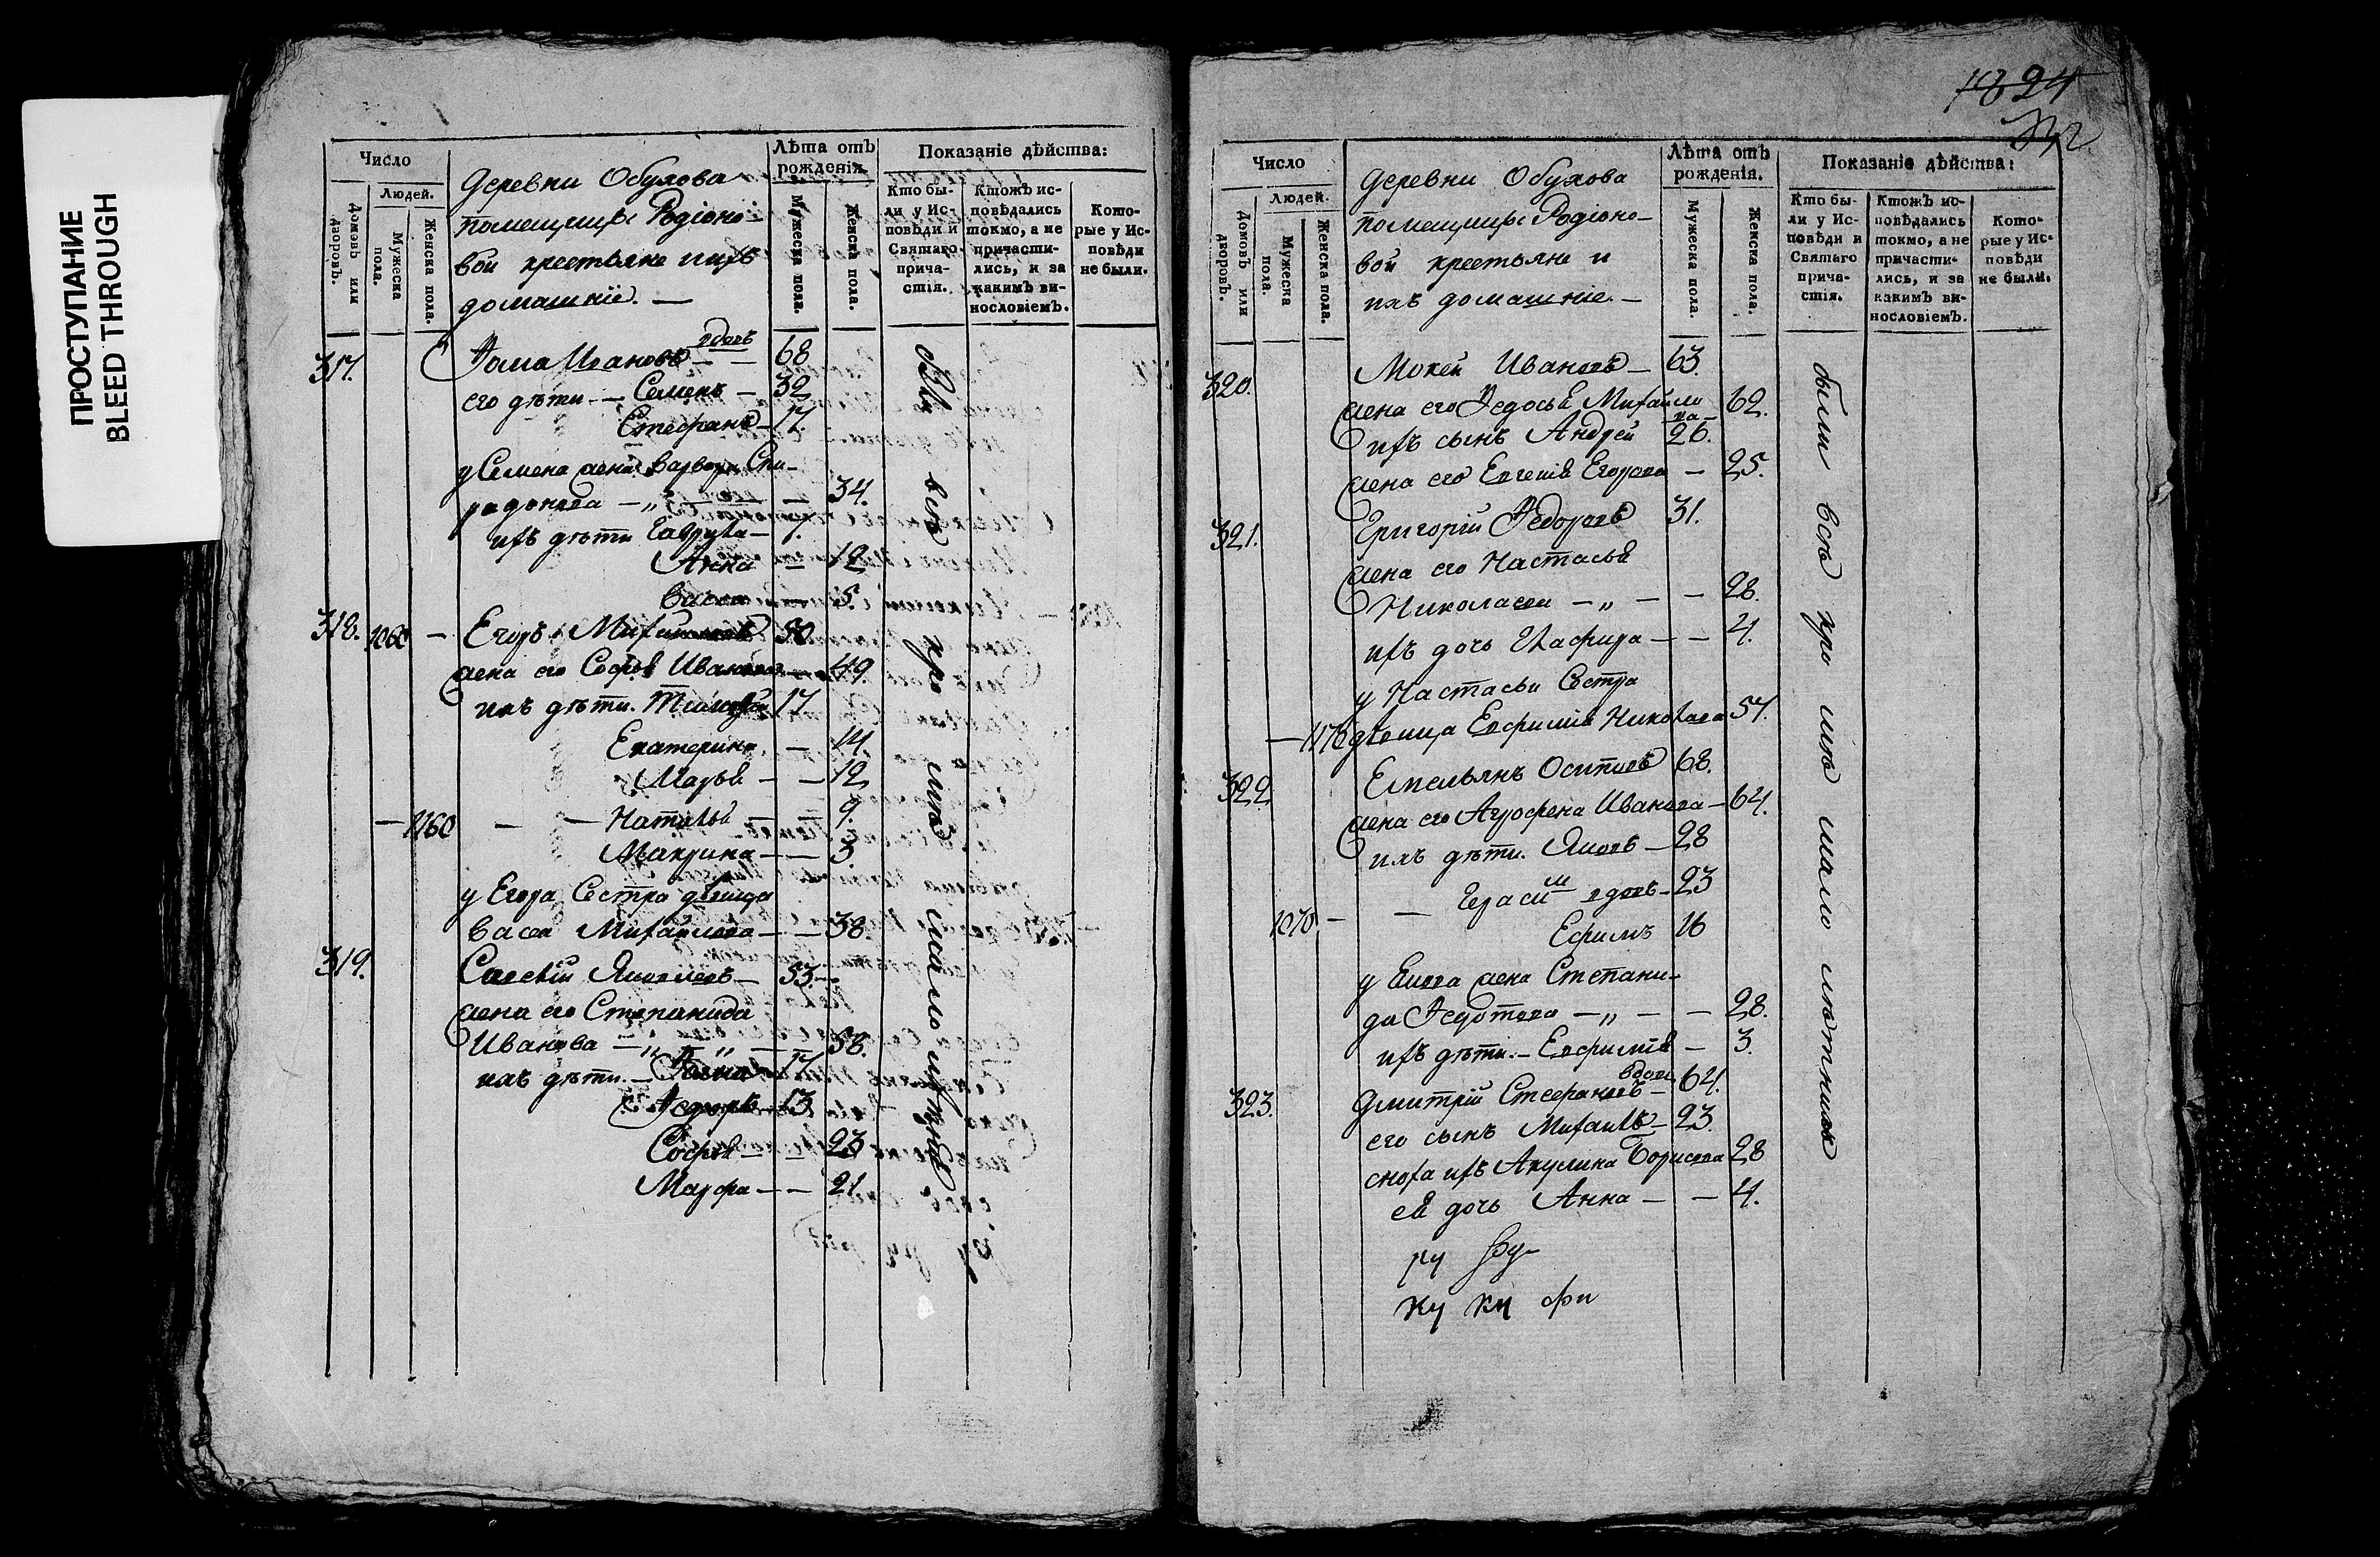 ПРОСТУПАНИЕ
BLEED THROUGH
Число
Людей.
Домовъ или дворовъ.
Мужеска пола.
Женска пола.
Деревни Обухова
помещицы Родіоно-
вой крестьяне ихъ
домашніе. —
Лѣта отъ рожденія.
Мужеска пола.
Женска пола.
Показаніе дѣйства:
Кто бы-
ли у Ис-
повѣди и
Святаго
прича-
стія.
Ктожъ ис-
повѣдались
токмо, а не
причасти-
лись, и за
какимъ ви-
нословіемъ.
Кото-
рые у Ис-
повѣди
не были.
317. Фома Ивановъ вдовъ — 68
его дѣти — Семенъ — 32
Стефанъ — 17.
у Семена жена Варвара Спи-
ридонова — „ — — 34.
ихъ дѣти Гаврила — 7.
Анна — 12
Васса — 5.
318. 1060 — Егоръ Михайловъ 50.
жена его Софья Иванова — 49.
ихъ дѣти. Тимофей 17
Екатерина — 14
Марья — — 12
— 1160 — — Наталья — — 9.
Макрина — — 3.
у Егора Сестра девица
Васса Михайлова — — 38.
319. Савелій Яковлевъ — 53. —
жена его Степанида
Иванова — „ — „ — 58.
ихъ дѣти. — Фома — 17
Федоръ — 13.
Софья — — 23
Марфа — — 21.
были всѣ кро мѣ мало лѣтныхъ
1824
Число
Людей.
Домовъ или дворовъ.
Мужеска пола.
Женска пола.
Деревни Обухова
помещицы Родіоно-
вой крестьяне и
ихъ домашніе. —
Лѣта отъ рожденія.
Мужеска пола.
Женска пола.
Показаніе дѣйства:
Кто бы-
ли у Ис-
повѣди и
Святаго
прича-
стія.
Ктожъ ис-
повѣдались
токмо, а не
причасти-
лись, и за
какимъ ви-
нословіемъ.
Кото-
рые у Ис-
повѣди
не были.
320. Мокей Ивановъ — 63.
жена его Федосья Михайло
ва — 62.
ихъ сынъ Андрей 26.
жена его Евгенія Егорова — 25.
321. Григорій Федоровъ 31.
жена его Настасья
Николаева — „ — — 28.
ихъ дочь Глафира — — 4.
у Настасьи Сестра
— 1170 девица Евфимія Николаева 57.
322 Емельянъ Осиповъ 68.
жена его Агрофена Иванова — 64.
ихъ дѣти. Яковъ — 28
Герасим вдовъ — 23
1070 — — Ефимъ 16
у Якова жена Степани-
да Федотова — „ — — 28.
ихъ дѣти. — Евфимія — 3.
323. Дмитрій Стефановъ вдовъ — 64.
его сынъ Михаилъ — 23.
сноха ихъ Акулина Борисова 28
ея дочь Анна — — 4.
были всѣ кро мѣ мало лѣтныхъ